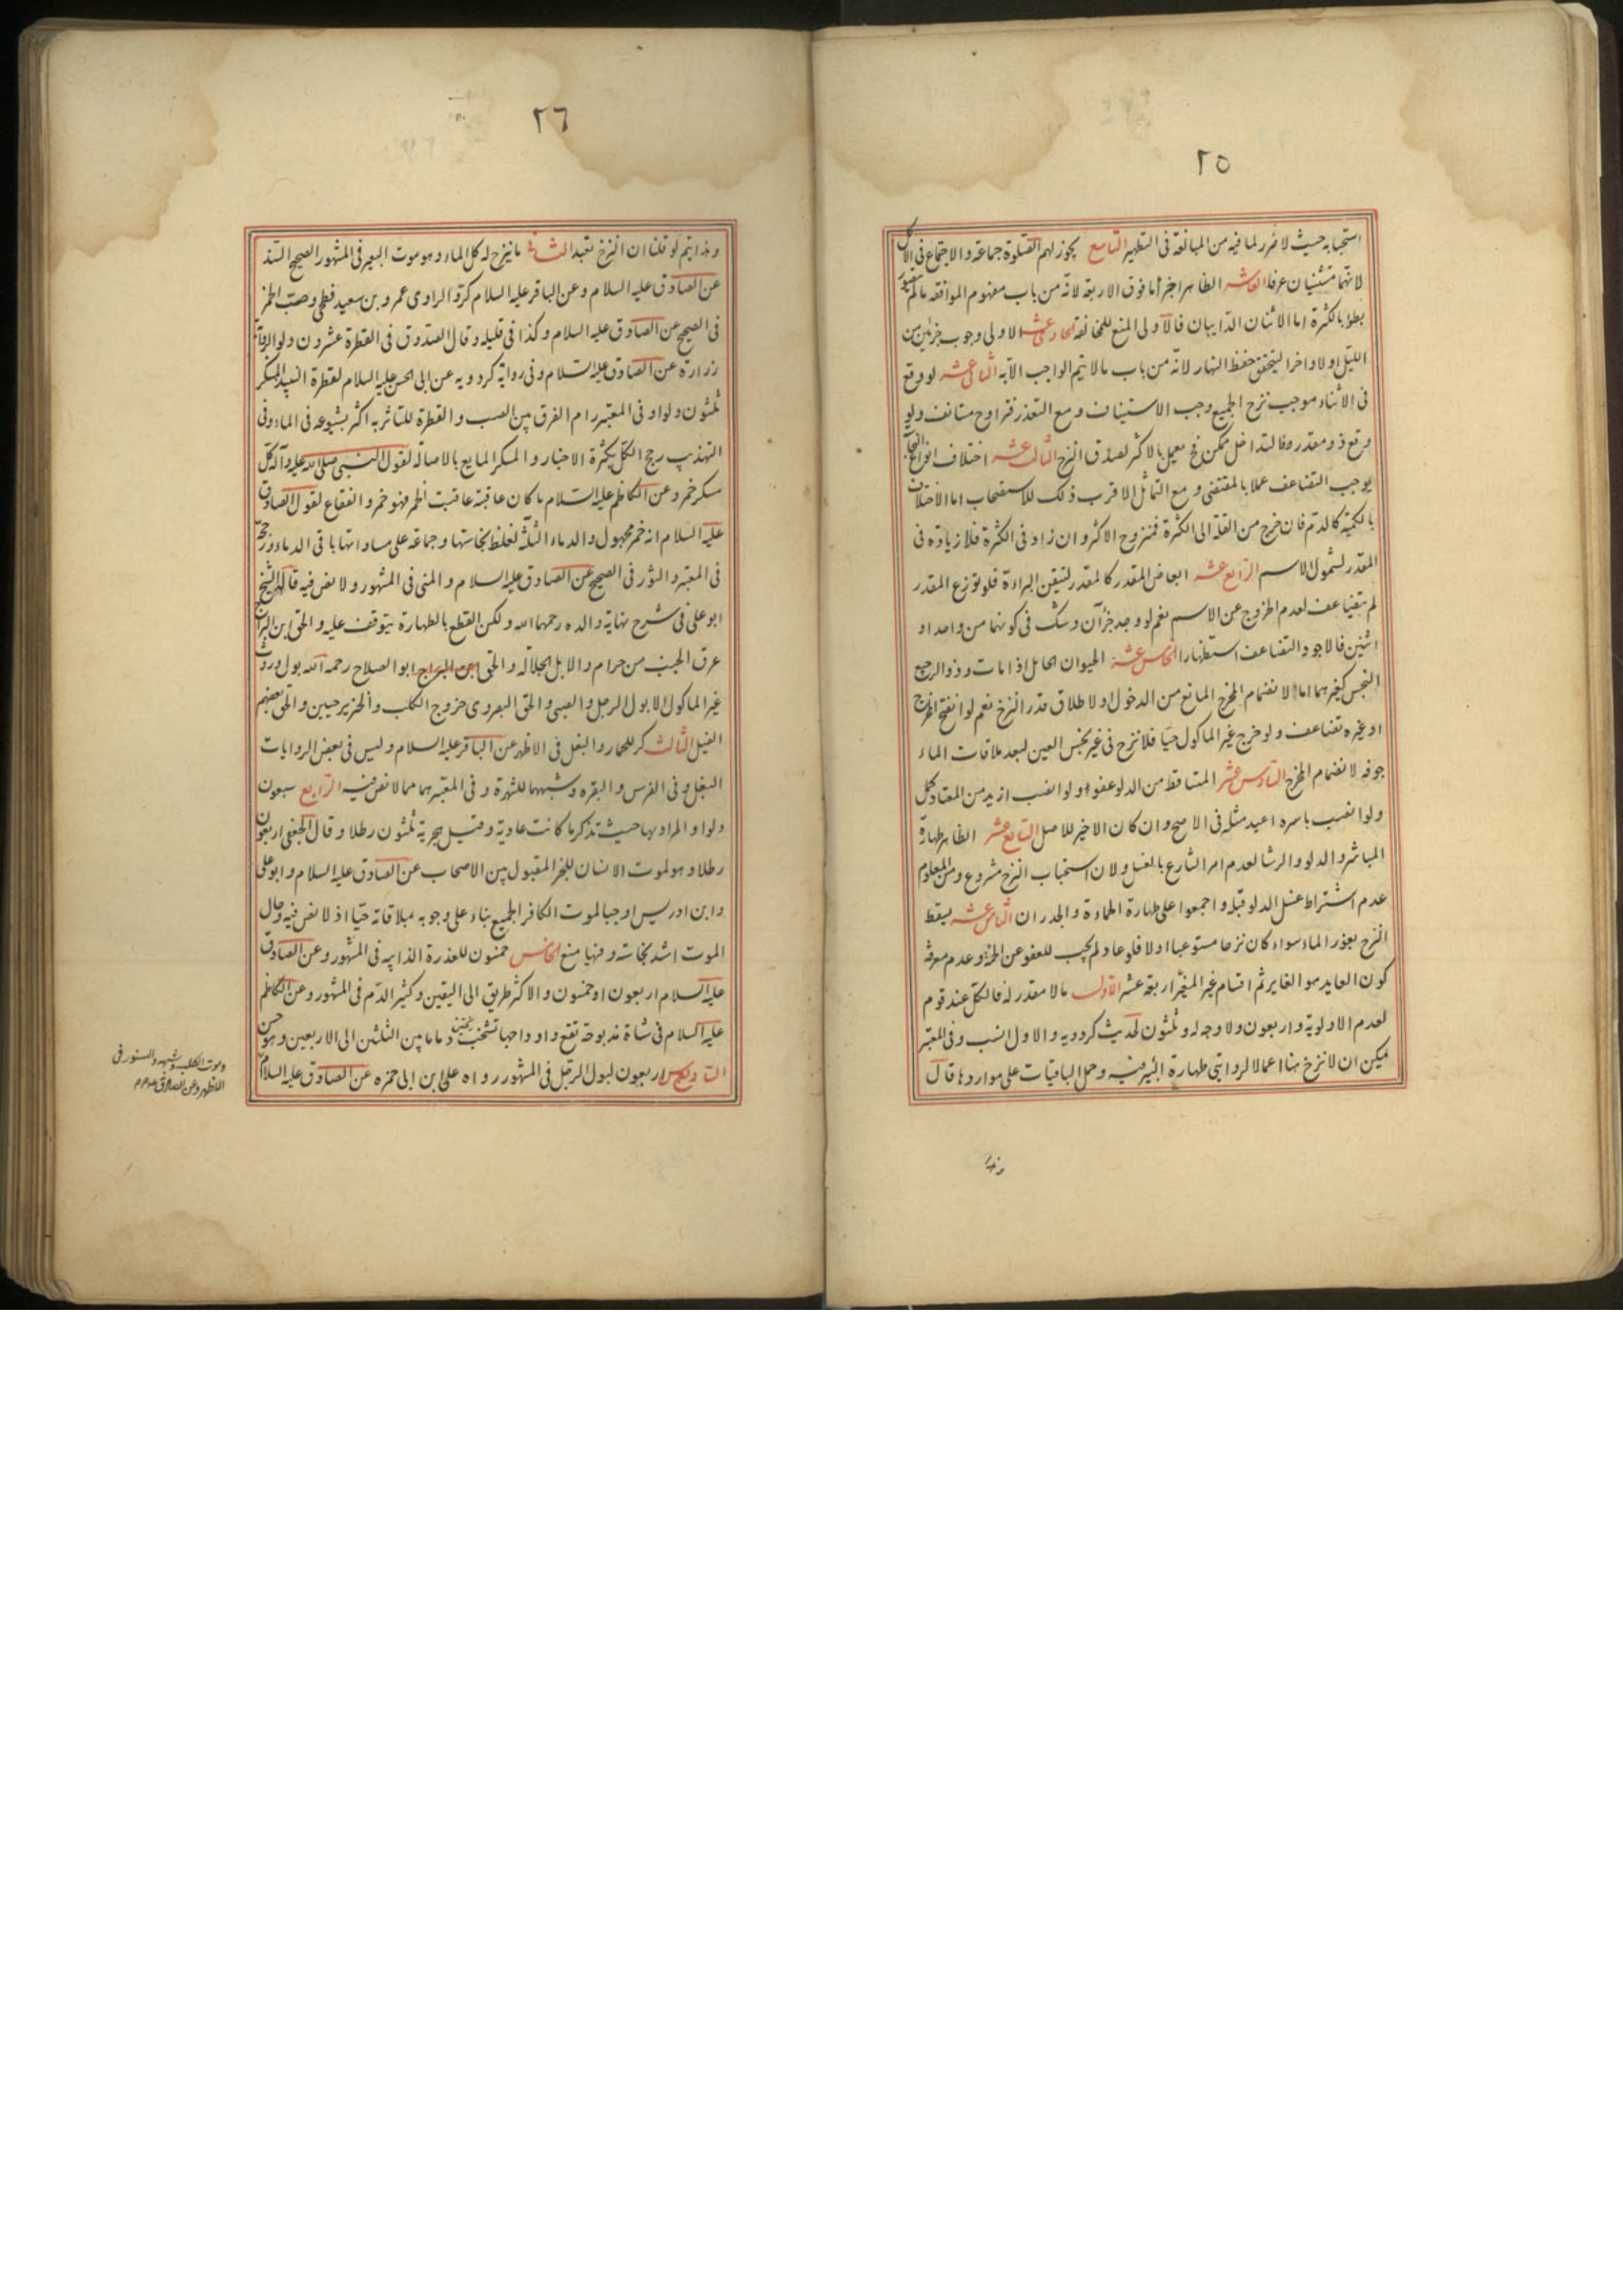 ٢٥
استحبابه حيث لا ضرر لما فيه من المبالغة فى التطهير التاسع يجوز لهم الصلوة جماعة والاجتماع فى الاكل
لانهما مستثنيان عرفا العاشر الظاهر اجزأ ما فوق الاربعة لانه من باب مفهوم الموافقه ما لم
بطؤ بالكثرة اما الاثنان الدايبان فالاولى المنع للمخالفة الحادى عشر الاولى وجوب جزئين من
الليل اولا واخرا ليتحقق حفظ النهار لانه من باب ما لا يتم الواجب الا به الثانى عشر لو وقع
فى الاثناء موجب نزح الجميع وجب الاستيناف ومع التعذر فتراوح مستانف ولو
وقع ذو مقدر وفالتداخل ممكن فح يعمل بالاكثر لصدق النزح الثالث عشر اختلاف انواع النجاسة
يوجب التضاعف عملا بالمقتضى ومع التماثل الاقرب ذلك للاستصحاب اما الاختلاف
بالكمية كالدم فان خرج من القلة الى الكثرة فمنزوح الاكثر وان زاد فى الكثرة فلا زيادة فى
المقدر لشمول الاسم الرابع عشر ابعاض المقدر كالمقدر لتيقن البراءة فلو توزع المقدر
لم يتضاعف لعدم الخروج عن الاسم نعم لو وجد جزآن وشك فى كونهما من واحد او
اثنين فالاجود التضاعف استظهارا الخامس عشر الحيوان الحامل اذا مات وذو الرجيع
النجس كغيرهما اما لانضمام المخرج المانع من الدخول او لاطلاق قدر النزح نعم لو انفتح المخرج
او غيره تضاعف ولو خرج غير الماكول حيا فلا نزح فى غير نجس العين لبعد ملاقات الماء
جوفه لانضمام المخرج السادس عشر المتساقط من الدلو عفو ولو انصب ازيد من المعتاد كمل
ولو انصب باسره اعيد مثله فى الاصح وان كان الاخير للاصل السابع عشر الظاهر طهارة
المباشر والدلو والرشا لعدم امر الشارع بالغسل ولان استحباب النزح مشروع ومن المعلوم
عدم اشتراط غسل الدلو قبله واجمعوا على طهارة الحماءة والجدران الثامن عشر يسقط
النزح بغور الماء سواء كان نزحا مستوعبا او لا فلو عاد لم يجب للعفو عن الحر وعدم معرفة
كون العايد هو الغاير ثم اقسام غير المغير اربعة عشر الاول ما لا مقدر له فالكل عند قوم
لعدم الاولوية واربعون ولا وجه له وثلثون لحديث كردويه والاول انسب وفى المعتبر
يمكن ان لا نزح هنا اعمالا لروايتى طهارة البئر فيه وحمل الباقيات على مواردها قال
وهذا
٢٦
وهذا يتم لو قلنا ان النزح تعبد الثانى ما ينزح له كل الماء وهو موت البعير فى المشهور الصحيح السند
عن الصادق عليه السلام وعن الباقر عليه السلام كر والراوى عمرو بن سعيد فطحى وصب الخمر
فى الصحيح عن الصادق عليه السلام وكذا فى قليله وقال الصدوق فى القطرة عشرون دلوا لرواية
زرارة عن الصادق عليه السلام وفى رواية كردويه عن ابى الحسن عليه السلام لقطرة النبيذ المسكر
ثلثون دلوا وفى المعتبر رام الفرق بين الصب والقطرة للتاثر به اكثر بشيوعه فى الماء وفى
التهذيب رجح الكل بكثرة الاخبار والمسكر المايع بالاصالة لقول النبى صلى الله عليه وآله كل
مسكر خمر وعن الكاظم عليه السلام ما كان عاقبته عاقبة الخمر فهو خمر والفقاع لقول الصادق
عليه السلام انه خمر مجهول والدماء الثلثة لغلظ نجاستها وجماعة على مساواتها باقى الدماء ورجحه
فى المعتبر والثور فى الصحيح عن الصادق عليه السلام والمنى فى المشهور ولا نص فيه قاله الشيخ
ابو على فى شرح نهاية والده رحمهما الله ولكن القطع بالطهارة يتوقف عليه والحق ابن البراج
عرق الجنب من حرام والابل الجلالة والحق ابن البراج ابو الصلاح رحمه الله بول وروث
غير الماكول الا بول الرجل والصبى والحق البصروى خروج الكلب والخنزير حيين والحق بعضهم
الفيل الثالث كر للحمار والبغل فى الاظهر عن الباقر عليه السلام وليس فى بعض الروايات
البغل وفى الفرس والبقرة وشبههما للشهرة وفى المعتبر هما مما لا نص فيه الرابع سبعون
دلوا والمراد بها حيث تذكر ما كانت عادية وقيل هجرية ثلثون رطلا وقال الجعفى اربعون
رطلا وهو لموت الانسان للخبر المقبول بين الاصحاب عن الصادق عليه السلام وابو على
وابن ادريس اوجبا لموت الكافر الجميع بناء على وجوبه بملاقاته حيا اذ لا نص فيه وحال
الموت اشد نجاسة وفيهما منع الخامس خمسون للعذرة الذايبة فى المشهور وعن الصادق
عليه السلام اربعون او خمسون والاكثر طريق الى اليقين وكثير الدم فى المشهور وعن الكاظم
عليه السلام فى شاة مذبوحة تقع واوداجها تشخب دما ما بين الثلثين الى الاربعين وهو حسن
السادس اربعون لبول الرجل فى المشهور رواه على ابن ابى حمزه عن الصادق عليه السلام
وموت الكلب وشبهه والسنور فى
الاظهر وعن الصادق